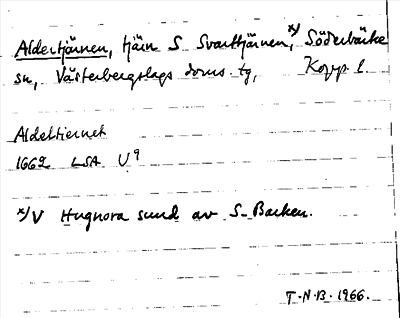 Aldertjärnen, tjärn S Svarttjärnen, x) Söderbärke
sn, Västerbergslags doms. tg, Kopp. l.
Aldeltiernet
1662 LSA U9
x) V Hugnora sund av S. Barken.
T.N.B. 1966.